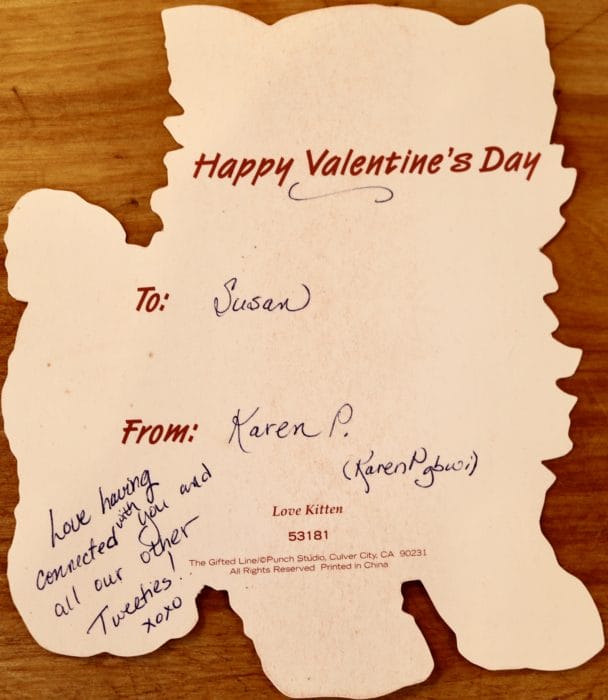 Happy Valentine's Day
To: Susan
From: Karen P.
(KarenPgbwi)
Love having
connected with you and
all our other
Tweeties!
xoxo
Love Kitten
53181
The Gifted Line/©Punch Studio, Culver City, CA 90231
All Rights Reserved Printed in China